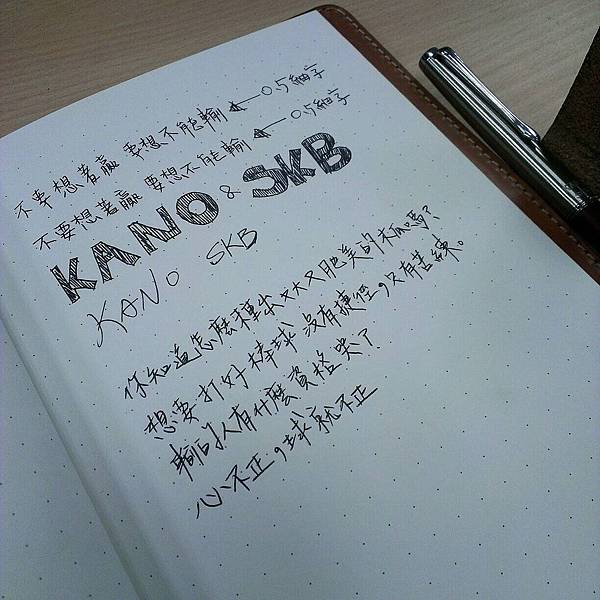 不要想著贏 要想不能輸 ← 0.5細字
不要想著贏 要想不能輸 ← 0.5細字
KANO & SKB
KANO SKB
你知道怎麼種出又大又肥美的木瓜嗎?
想要打好棒球沒有捷徑,只有苦練。
輸的人有什麼資格哭了
心不正,球就不正